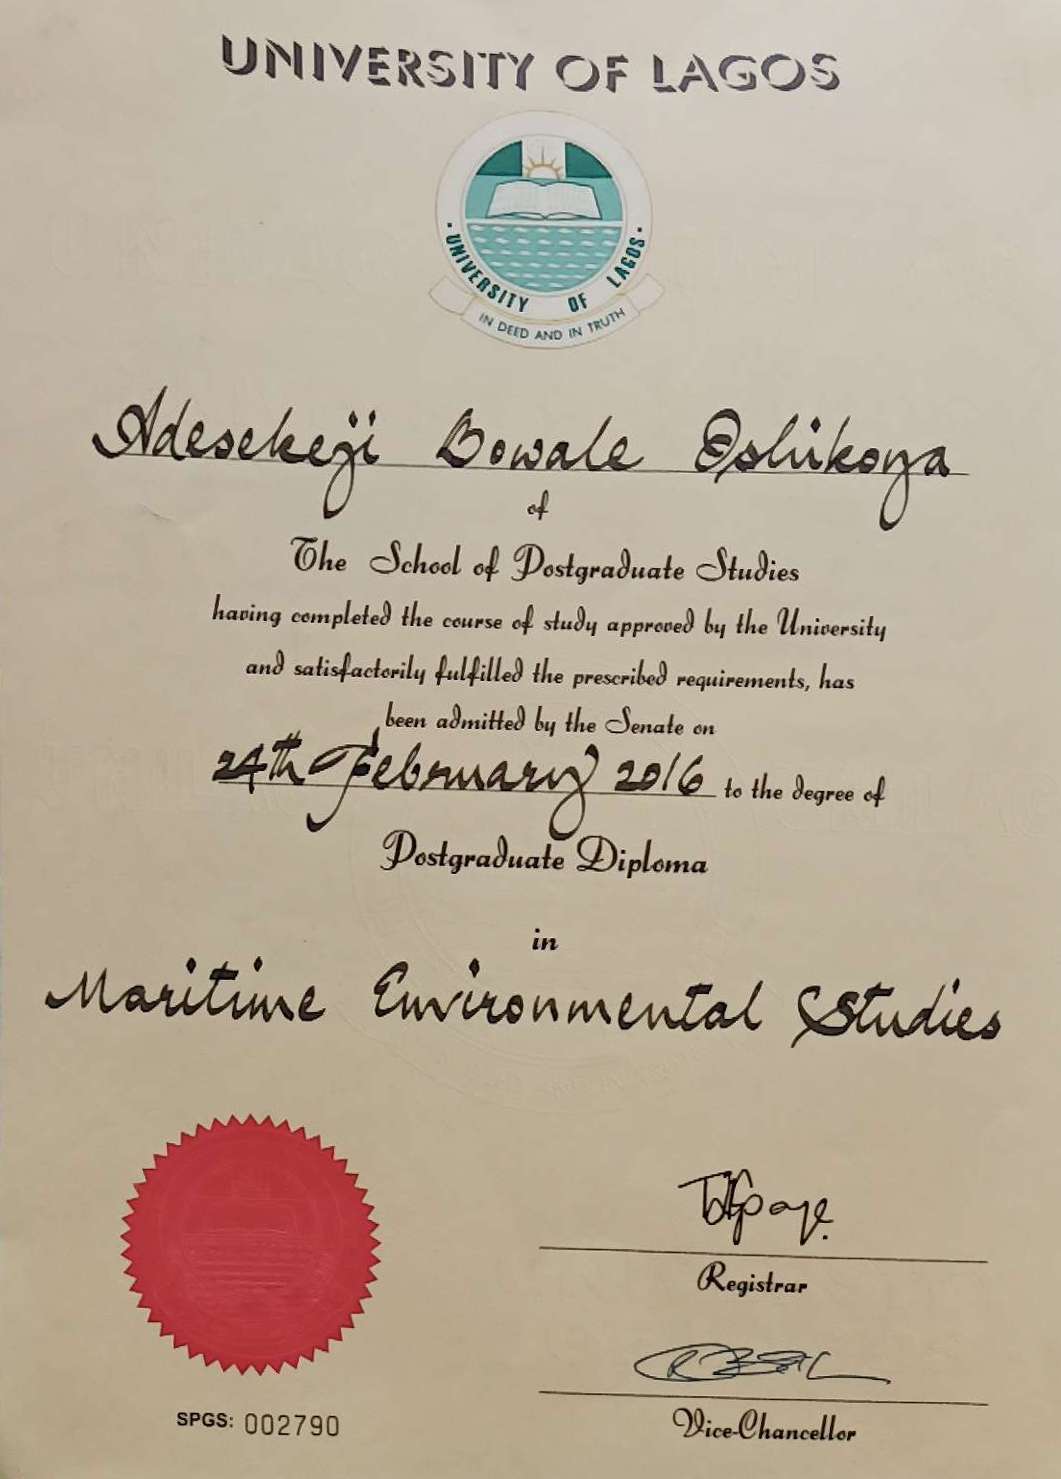 UNIVERSITY OF LAGOS
· UNIVERSITY OF LAGOS ·
IN DEED AND IN TRUTH
Adesekeji Bowale Oshikoya
of
The School of Postgraduate Studies
having completed the course of study approved by the University
and satisfactorily fulfilled the prescribed requirements, has
been admitted by the Senate on
24th February 2016 to the degree of
Postgraduate Diploma
in
Maritime Environmental Studies
Registrar
Vice-Chancellor
SPGS: 002790